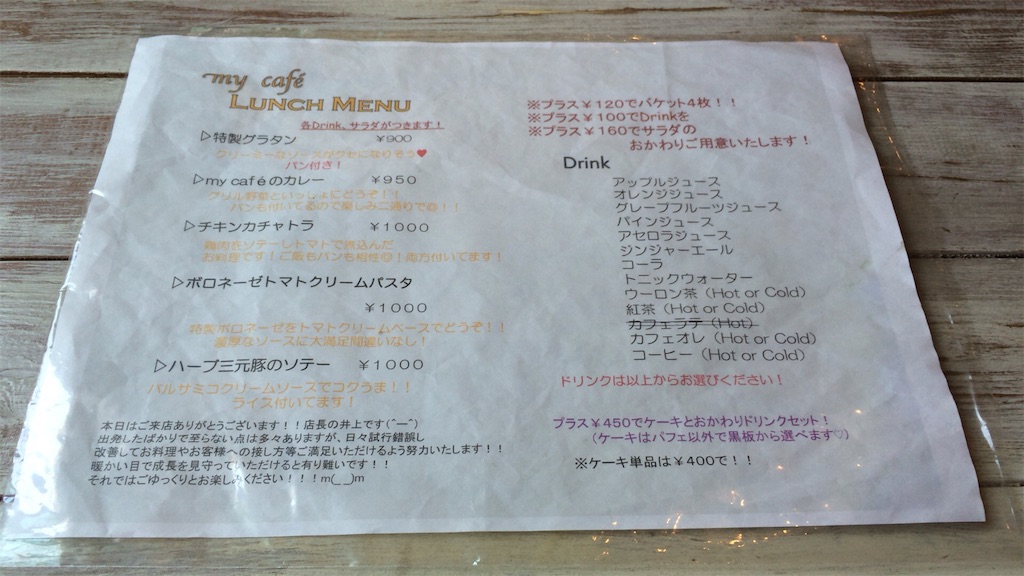 my café
LUNCH MENU
各Drink、サラダがつきます！
▷特製グラタン ￥900
クリーミーなソースがクセになりそう♥
パン付き！
▷my caféのカレー ￥950
グリル野菜といっしょにどうぞ！！
パンも付いてるので楽しみ二通りで◎！！
▷チキンカチャトラ ￥1000
鶏肉をソテーしトマトで煮込んだ
お料理です！ご飯もパンも相性◎！両方付いてます！
▷ボロネーゼトマトクリームパスタ
￥1000
特製ボロネーゼをトマトクリームベースでどうぞ！！
濃厚なソースに大満足間違いなし！
▷ハーブ三元豚のソテー ￥1000
バルサミコクリームソースでコクうま！！
ライス付いてます！
本日はご来店ありがとうございます！！店長の井上です(^ー^)
出発したばかりで至らない点は多々ありますが、日々試行錯誤し
改善してお料理やお客様への接し方等ご満足いただけるよう努力いたします！！
暖かい目で成長を見守っていただけると有り難いです！！
それではごゆっくりとお楽しみください！！！m(_ _)m
※プラス￥120でバケット4枚！！
※プラス￥100でDrinkを
※プラス￥160でサラダの
おかわりご用意いたします！
Drink
アップルジュース
オレンジジュース
グレープフルーツジュース
パインジュース
アセロラジュース
ジンジャーエール
コーラ
トニックウォーター
ウーロン茶（Hot or Cold）
紅茶（Hot or Cold）
カフェラテ（Hot）
カフェオレ（Hot or Cold）
コーヒー（Hot or Cold）
ドリンクは以上からお選びください！
プラス￥450でケーキとおかわりドリンクセット！
（ケーキはパフェ以外で黒板から選べます♡）
※ケーキ単品は￥400で！！